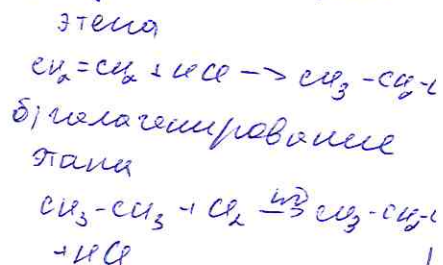 этена
CH₂=CH₂ + HCl —> CH₃ - CH₂ -
б) галагенирование
этана
CH₃-CH₃ + Cl₂ hν→ CH₃-CH₂-
+HCl